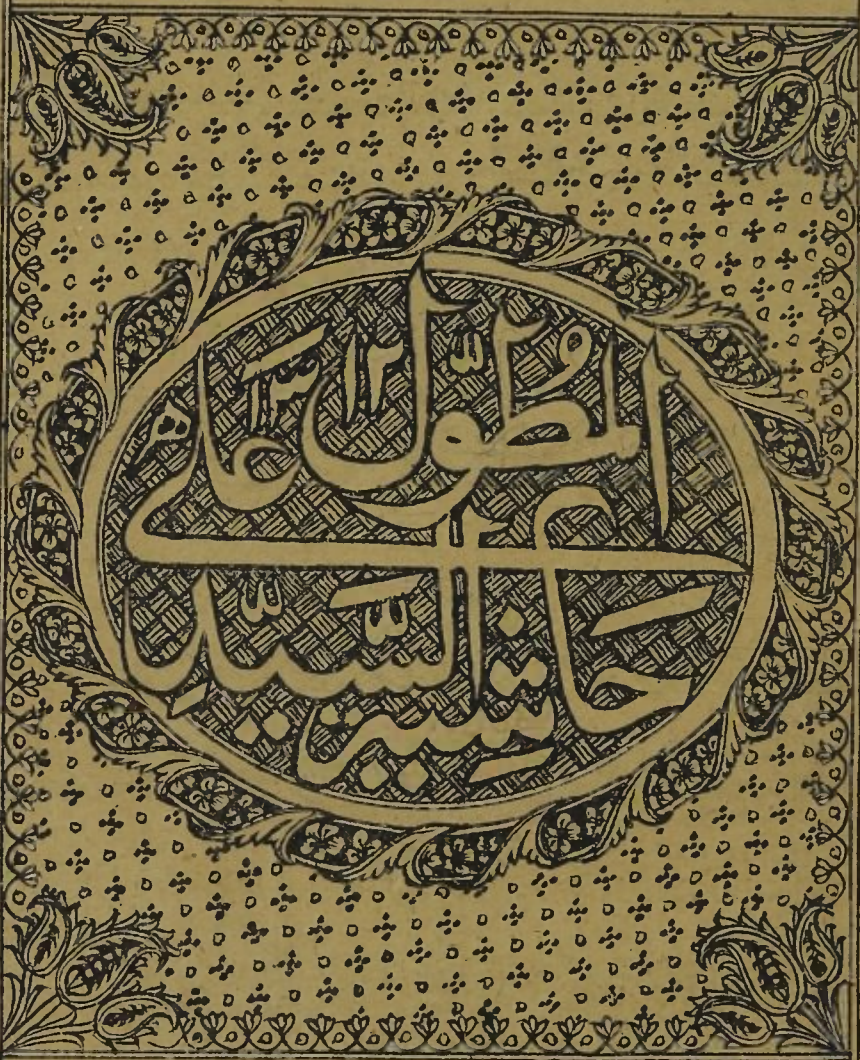 حَاشِية السَّيِّدِ
عَلى المُطَوّل
١٣١٢ ه